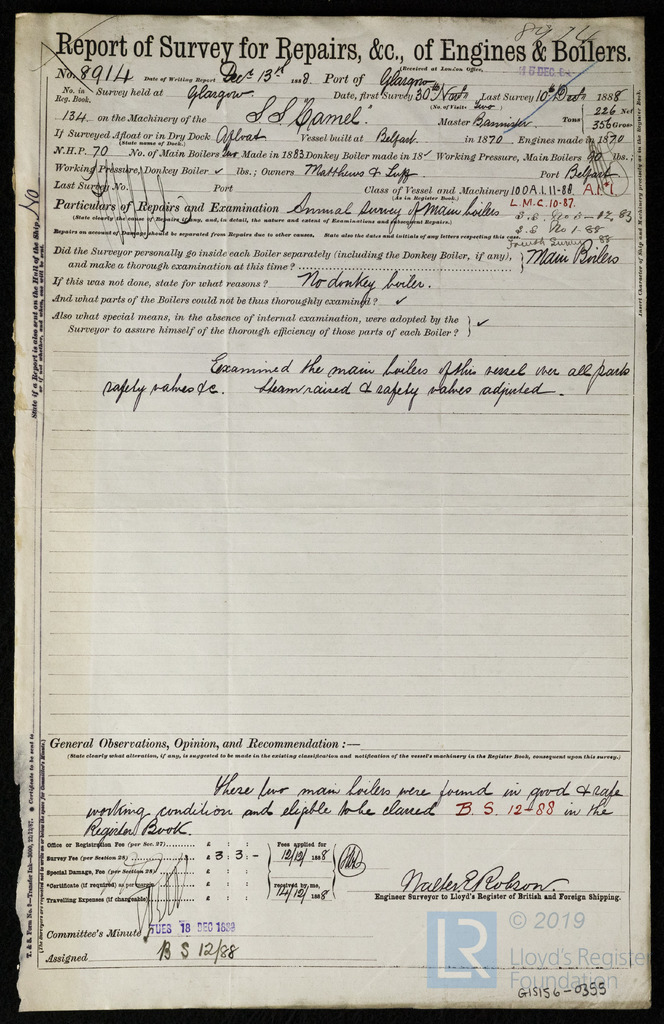 8974
Report of Survey for Repairs, &c., of Engines & Boilers.
No. 8914 Date of Writing Report Decr 13th 1888 Port of Glasgow Received at London Office, 15 DEC 8
No. in Reg. Book. Survey held at Glasgow Date, first Survey 30th Novr Last Survey 10th Decr 1888
(No. of Visits Two)
134 on the Machinery of the S S "Camel" Master Bannister Tons 226 Net 356 Gross
If Surveyed Afloat or in Dry Dock Afloat Vessel built at Belfast in 1870 Engines made in 1870
(State name of Dock.)
N.H.P. 70 No. of Main Boilers two Made in 1883 Donkey Boiler made in 18 ✓ Working Pressure, Main Boilers 90 lbs.;
Working Pressure, Donkey Boiler ✓ lbs.; Owners Matthews & Luff Port Belfast
Last Survey No. Port Class of Vessel and Machinery 100A.1.11-88 A.1*
(As in Register Book.) L.M.C. 10-87.
Particulars of Repairs and Examination Annual Survey of Main boilers
(State clearly the cause of Repairs if any, and, in detail, the nature and extent of Examinations and subsequent Repairs.)
S.S. No 1-88
Repairs on account of Damage should be separated from Repairs due to other causes. State also the dates and initials of any letters respecting this case.
Did the Surveyor personally go inside each Boiler separately (including the Donkey Boiler, if any), and make a thorough examination at this time? Main Boilers
If this was not done, state for what reasons? No donkey boiler.
And what parts of the Boilers could not be thus thoroughly examined? ✓
Also what special means, in the absence of internal examination, were adopted by the Surveyor to assure himself of the thorough efficiency of those parts of each Boiler? ✓
Examined the main boilers of this vessel over all parts
safety valves &c. Steam raised & safety valves adjusted.
General Observations, Opinion, and Recommendation:—
(State clearly what alteration, if any, is suggested to be made in the existing classification and notification of the vessel's machinery in the Register Book, consequent upon this survey.)
These two main boilers were found in good & safe
working condition and eligible to be classed B.S. 12-88 in the
Register Book.
Office or Registration Fee (per Sec. 27) £ : :
Survey Fee (per Section 28) £ 3 : 3 : -
Special Damage, Fee (per Section 28) £ : :
*Certificate (if required) as per margin £ : :
Travelling Expenses (if chargeable) £ : :
Fees applied for 12/12/1888
received by me, 14/12/1888
Walter E Robson.
Engineer Surveyor to Lloyd's Register of British and Foreign Shipping.
Committee's Minute TUES 18 DEC 1888
Assigned B S 12/88
State if a Report is also sent on the Hull of the Ship. No
LR © 2019
Lloyd's Register
Foundation
GIS156-0355